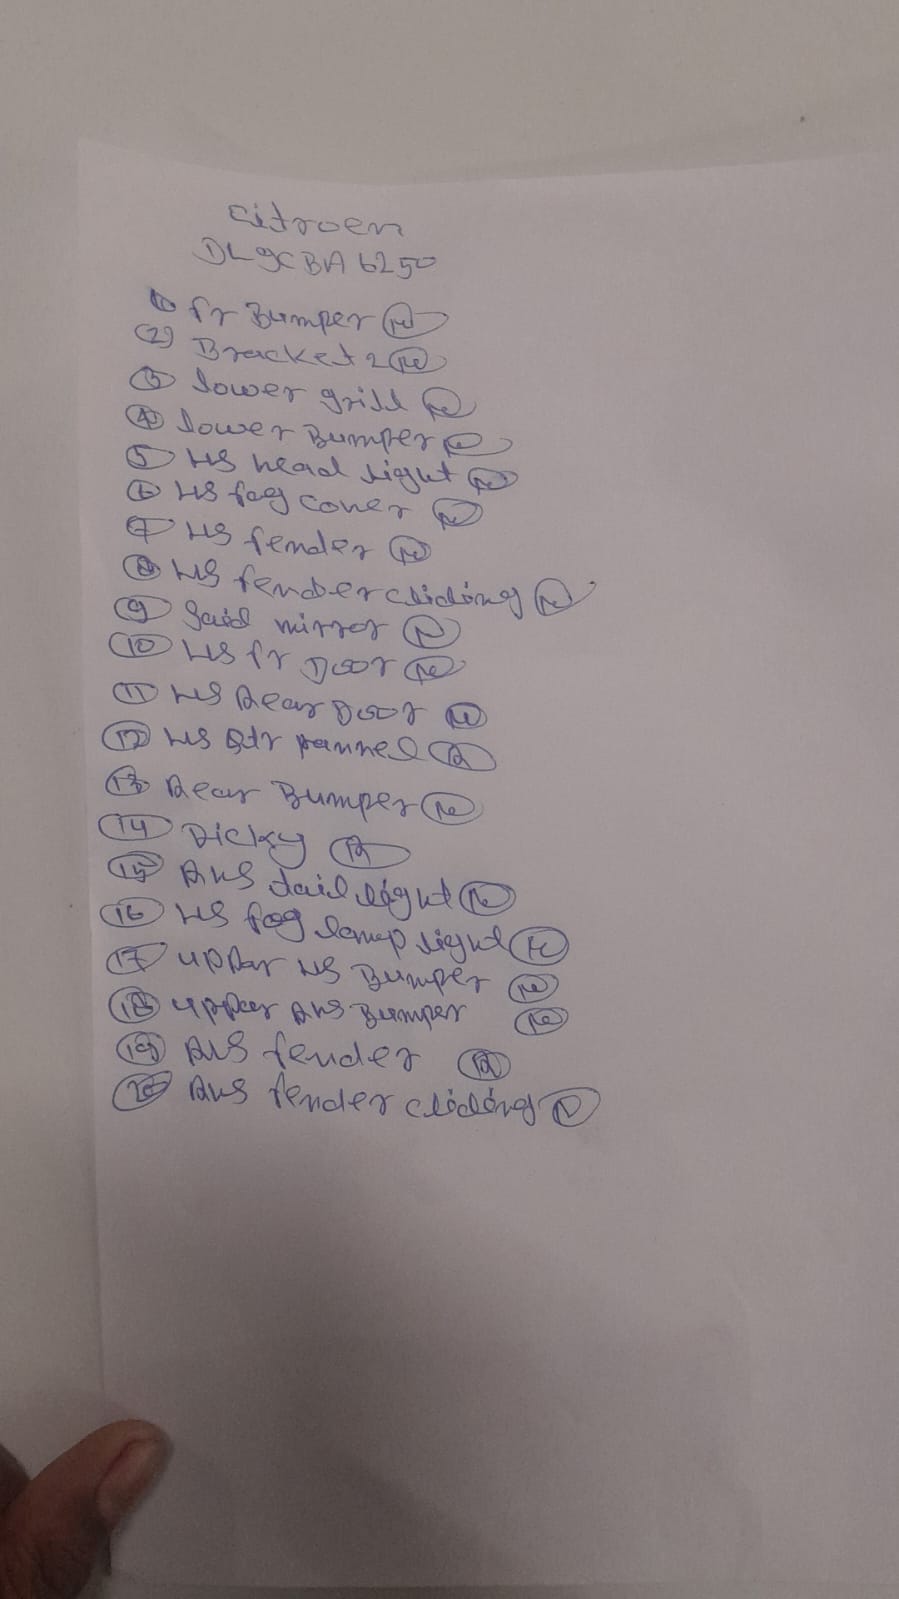 Citroen
DL9CBA6250
1 fr Bumper Ne
(2) Bracket 2 Ne
3 lower grill Ne
4 lower Bumper Ne
5 LHS head light Ne
6 LHS fog cover Ne
7 LHS fender Ne
8 LHS fender cliding Ne
9 Said mirror Ne
10 LHS fr Door Ne
11 LHS Rear Door Ne
12 LHS Qtr pannel R
13 Rear Bumper Ne
14 Dicky R
15 RHS tail light Ne
16 LHS fog lamp light Ne
17 uppar LHS Bumper Ne
18 uppar RHS Bumper Ne
19 RHS fender R
20 RHS fender cliding N